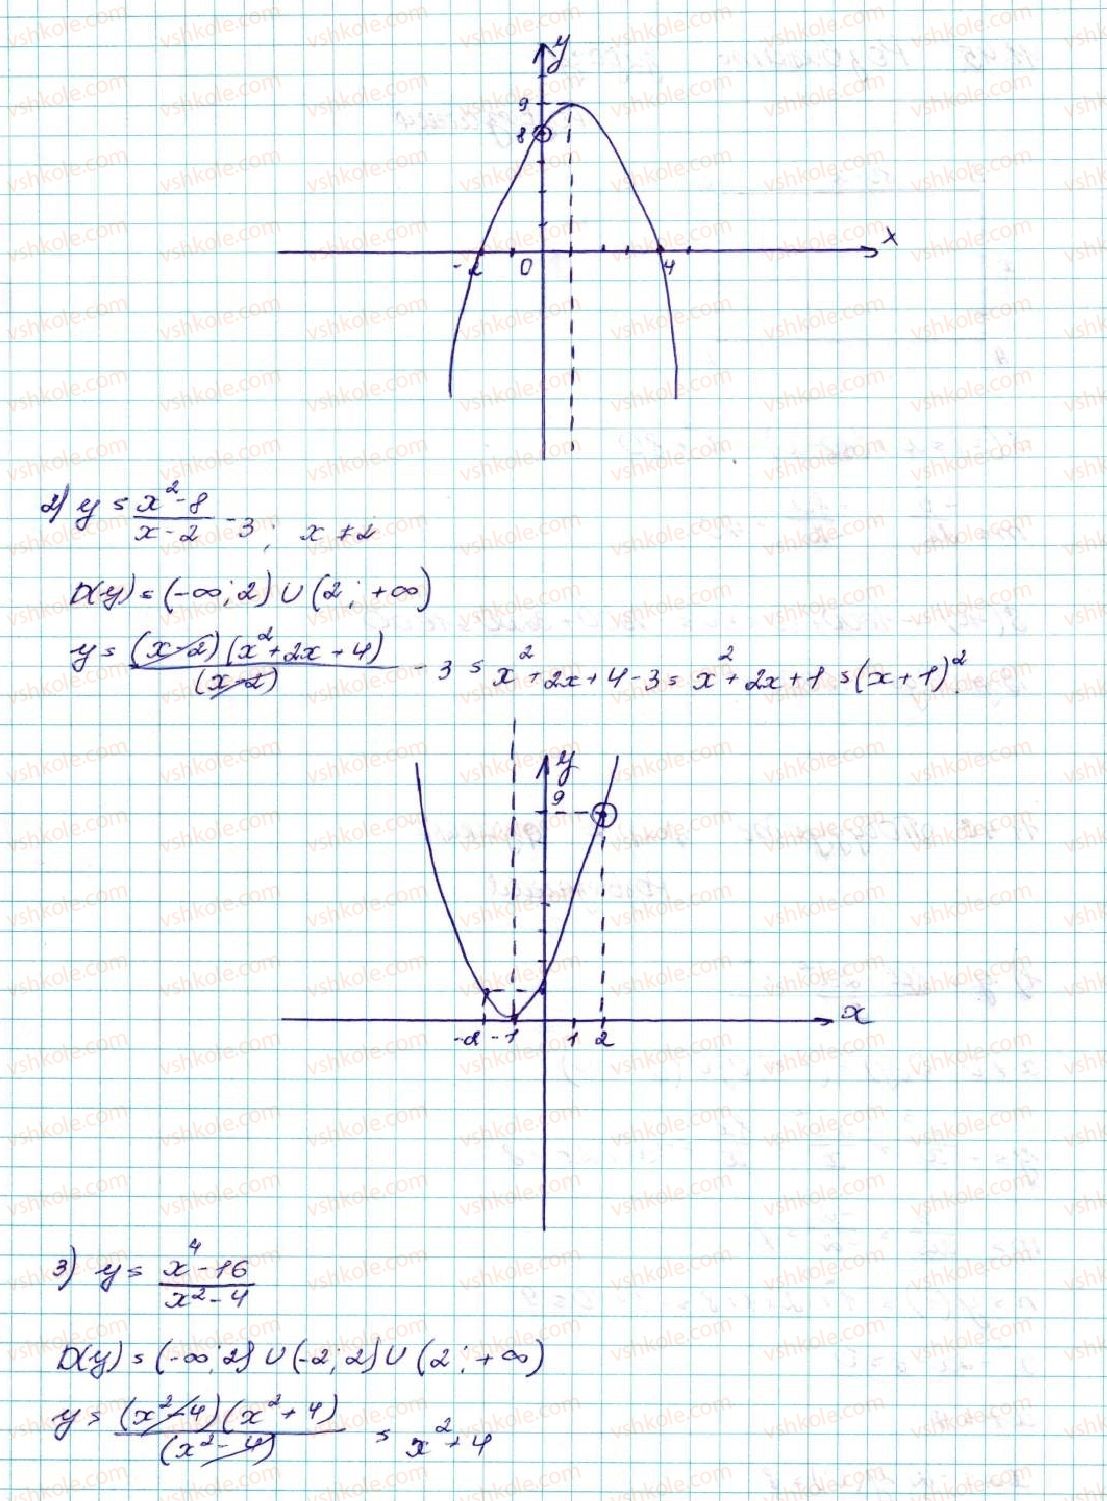 y
9
8
x
-2 0 4
2) y = \frac{x^2-8}{x-2} - 3; x ≠ 2
D(y) = (-∞; 2) ∪ (2; +∞)
y = \frac{(x-2)(x^2+2x+4)}{(x-2)} - 3 = x^2+2x+4-3 = x^2+2x+1 = (x+1)^2.
y
9
x
-2 -1 1 2
3) y = \frac{x^4-16}{x^2-4}
D(y) = (-∞; 2) ∪ (-2; 2) ∪ (2; +∞)
y = \frac{(x^2-4)(x^2+4)}{(x^2-4)} = x^2+4
vshkole.com